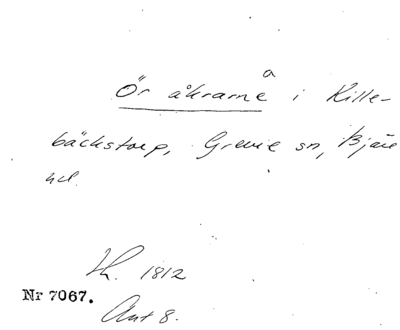 a
Ör åkrarne i Kille-
bäckstorp, Grevie sn, Bjäre
hd.
1812
Nr 7067.
Akt 8.